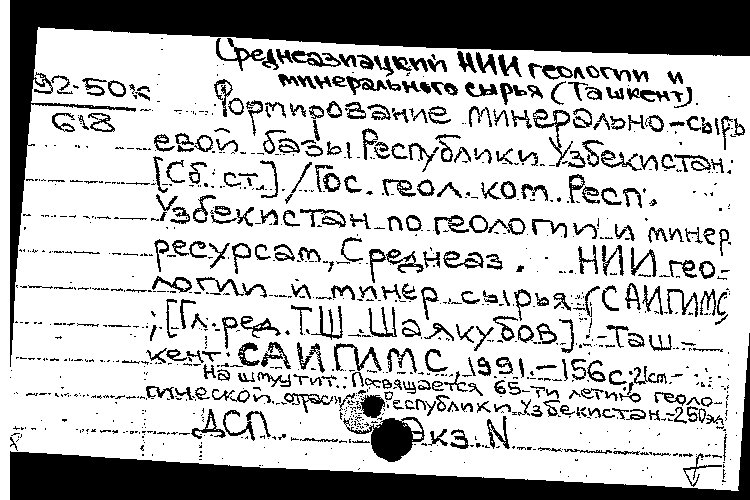 Среднеазиацкий НИИ геологии и
минерального сырья (Ташкент).
92-50к
618
Формирование минерально-сырь
евой базы Республики Узбекистан:
[Сб. ст.] / Гос. геол. ком. Респ.
Узбекистан по геологии и минер
ресурсам, Среднеаз. НИИ гео-
логии и минер сырья (САИГИМС)
; [Гл. ред. Т.Ш. Шаякубов]. - Таш-
кент: САИГИМС, 1991. - 156с; 21см. -
На шмуцтит.: Посвящается 65-ти летию геоло-
гической отрасли Республики Узбекистан. - 250эк
ДСП. Экз. N